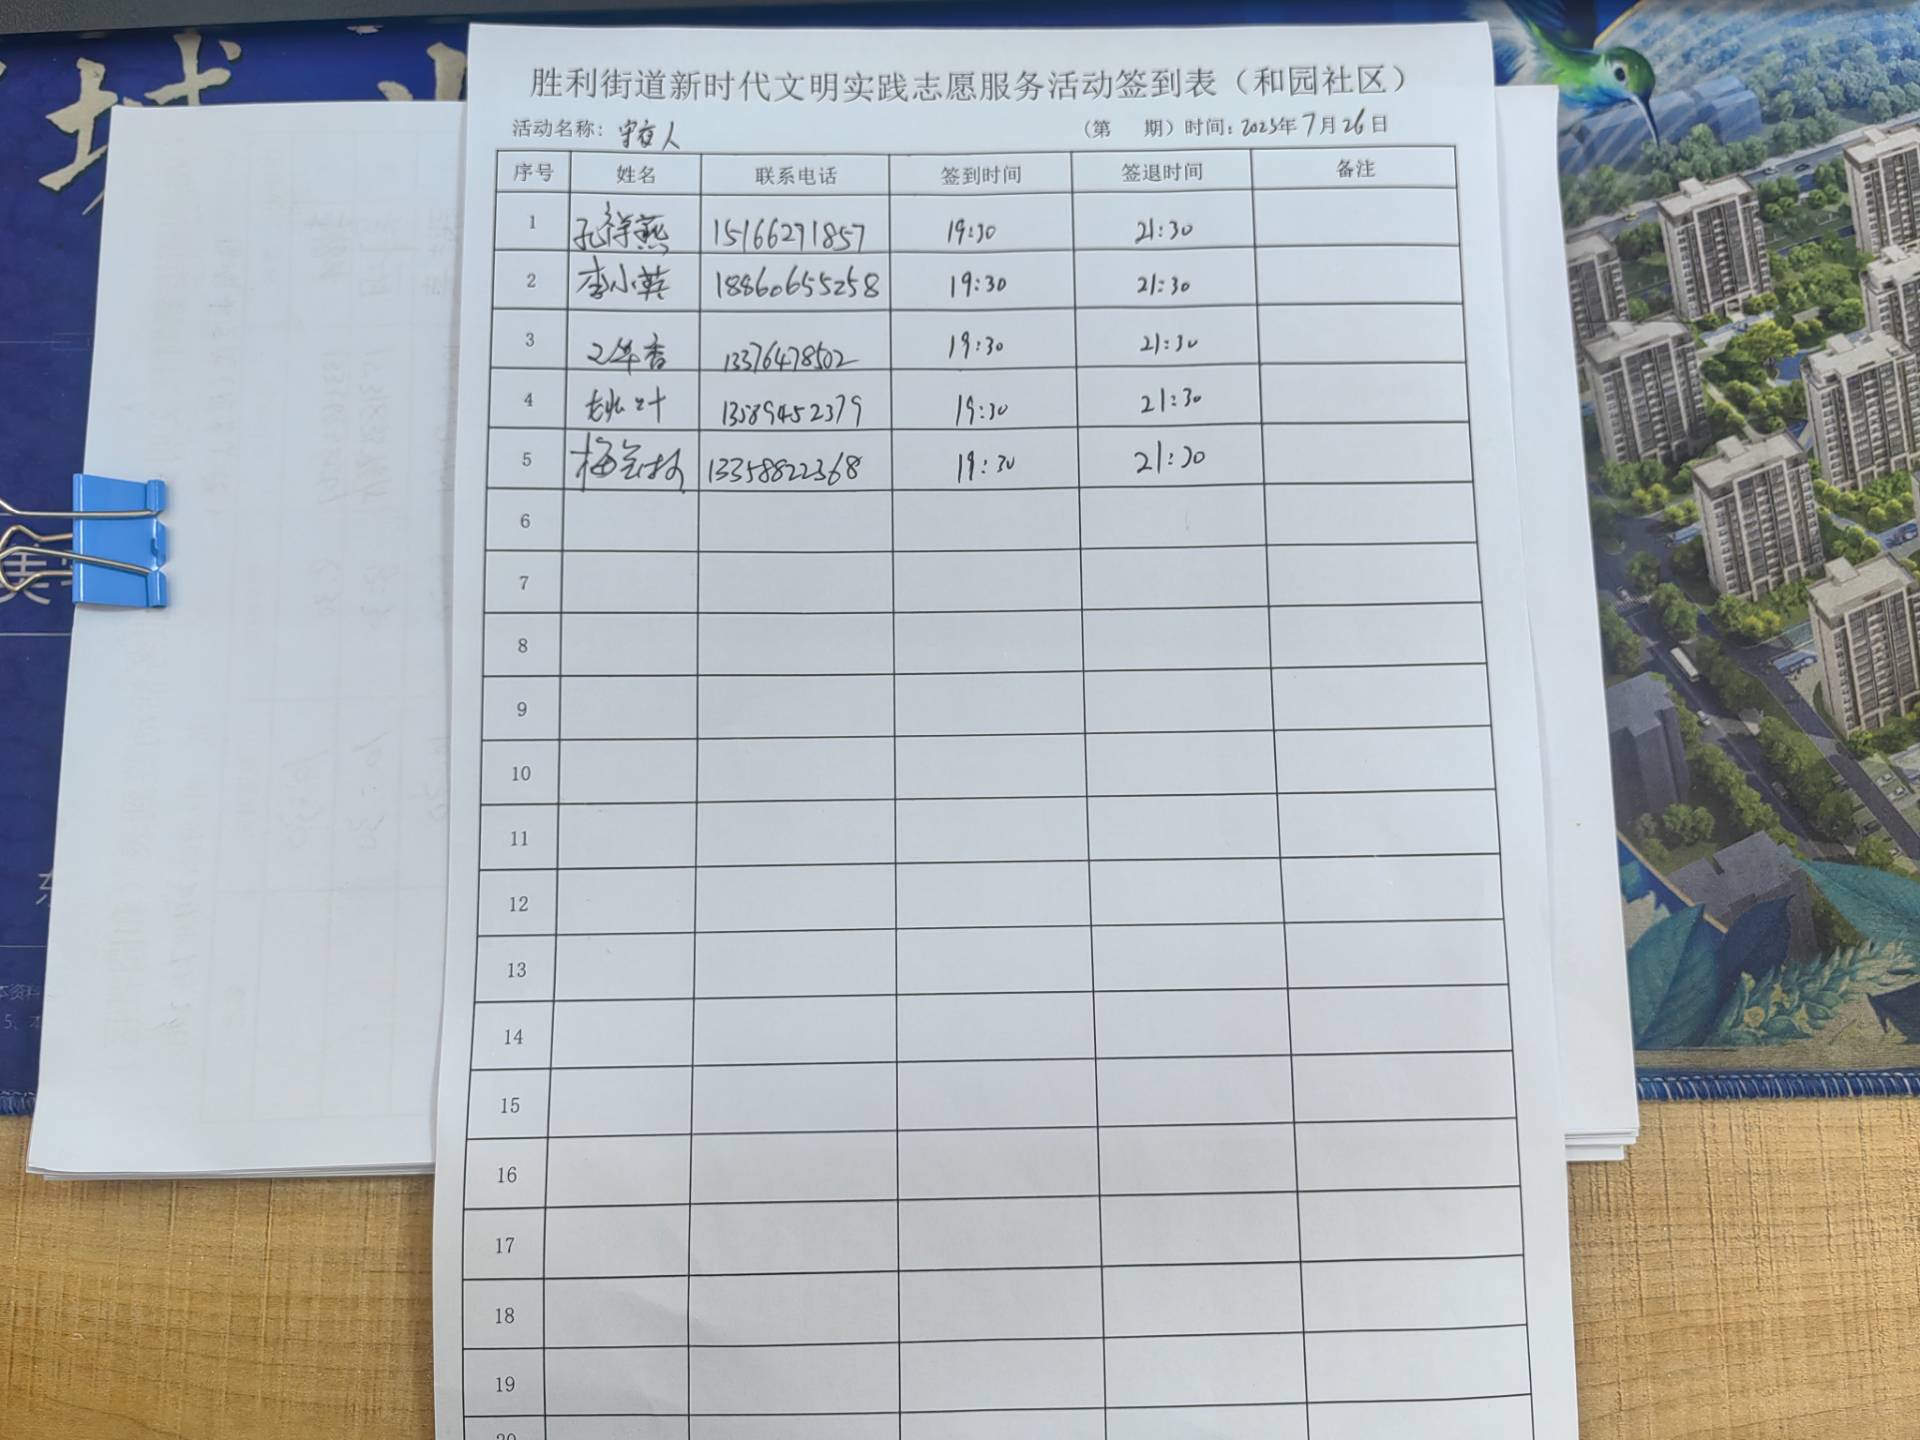 胜利街道新时代文明实践志愿服务活动签到表（和园社区）
活动名称：守夜人 （第 期）时间：2025年7月26日
序号 姓名 联系电话 签到时间 签退时间 备注
1 孔祥燕 15166271857 19:30 21:30
2 李小英 18860655258 19:30 21:30
3 13376478502 19:30 21:30
4 姚叶 13589452379 19:30 21:30
5 13358822368 19:30 21:30
6
7
8
9
10
11
12
13
14
15
16
17
18
19
20
城